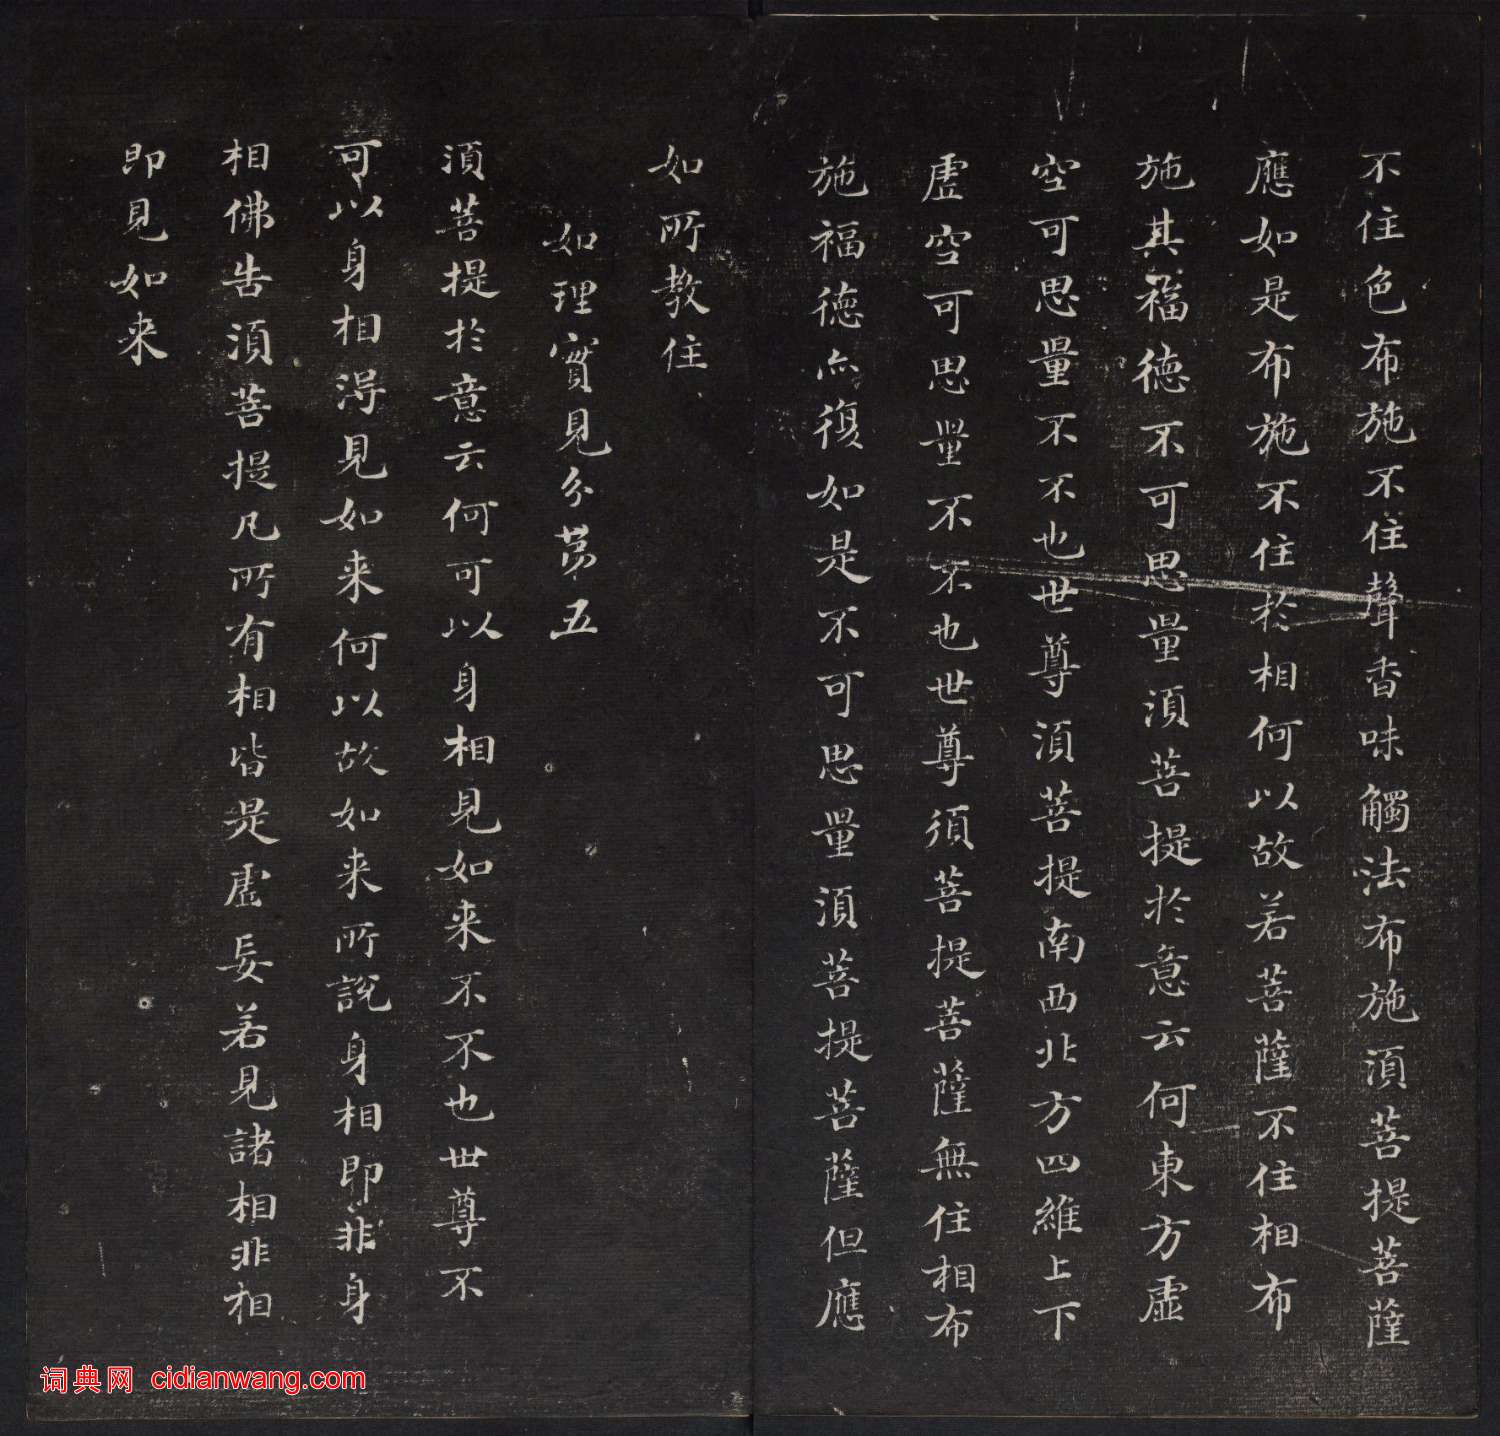 不住色布施不住聲香味觸法布施須菩提菩薩
應如是布施不住於相何以故若菩薩不住相布
施其福德不可思量須菩提於意云何東方虛
空可思量不不也世尊須菩提南西北方四維上下
虛空可思量不不也世尊須菩提菩薩無住相布
施福德亦復如是不可思量須菩提菩薩但應
如所教住
如理實見分第五
須菩提於意云何可以身相見如来不不也世尊不
可以身相得見如来何以故如来所說身相即非身
相佛告須菩提凡所有相皆是虛妄若見諸相非相
即見如来
词典网 cidianwang.com